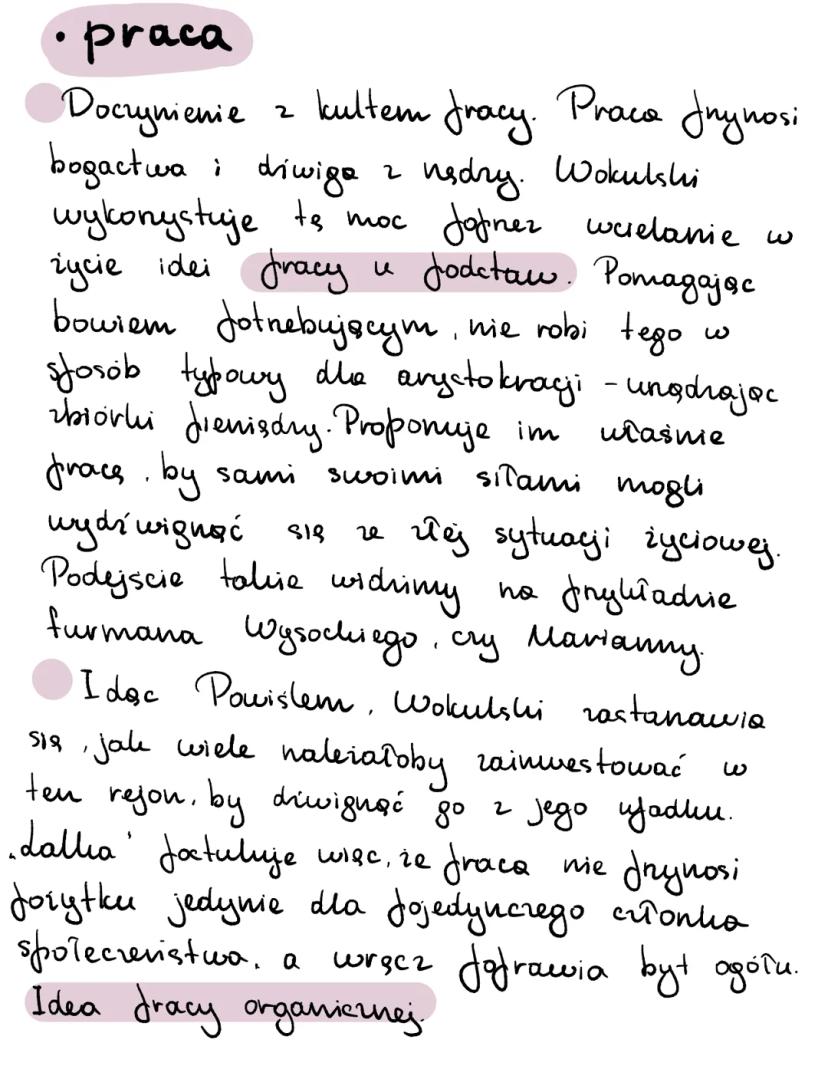 • praca
Doczynienie z kultem pracy. Praca przynosi
bogactwa i dźwiga z nędzy. Wokulski
wykorzystuje tę moc poprzez wcielanie w
życie idei pracy u podstaw. Pomagając
bowiem potrzebującym, nie robi tego w
sposób typowy dla arystokracji - urządzając
zbiórki pieniędzy. Proponuje im właśnie
pracę, by sami swoimi siłami mogli
wydźwignąć się ze złej sytuacji życiowej.
Podejście takie widzimy na przykładzie
furmana Wysockiego, czy Marianny.
Idąc Powiślem, Wokulski zastanawia
się, jak wiele należałoby zainwestować w
ten rejon, by dźwignąć go z jego upadku.
„Lalka" postuluje więc, że praca nie przynosi
pożytku jedynie dla pojedynczego członka
społeczeństwa, a wręcz poprawia byt ogółu.
Idea pracy organicznej.